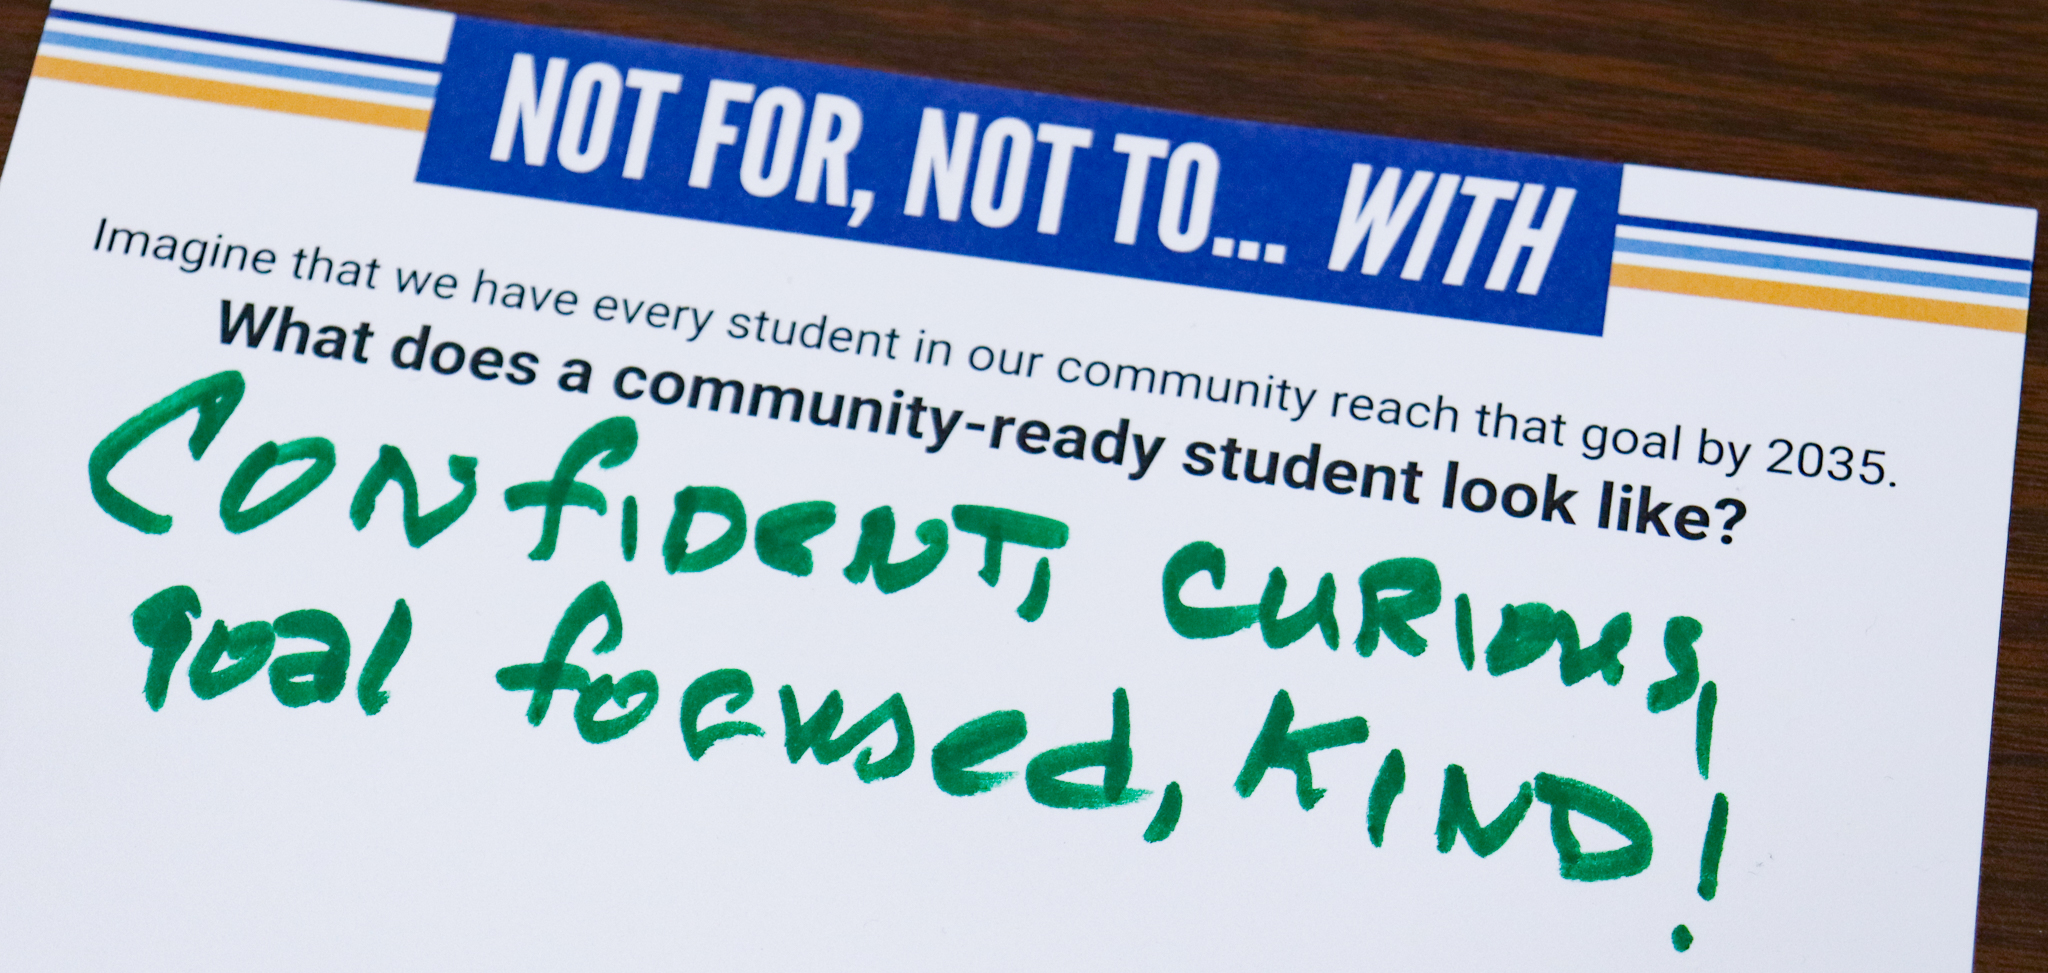 NOT FOR, NOT TO... WITH
Imagine that we have every student in our community reach that goal by 2035.
What does a community-ready student look like?
CONfIDENT, CURIOUS,
goal focused, KIND!